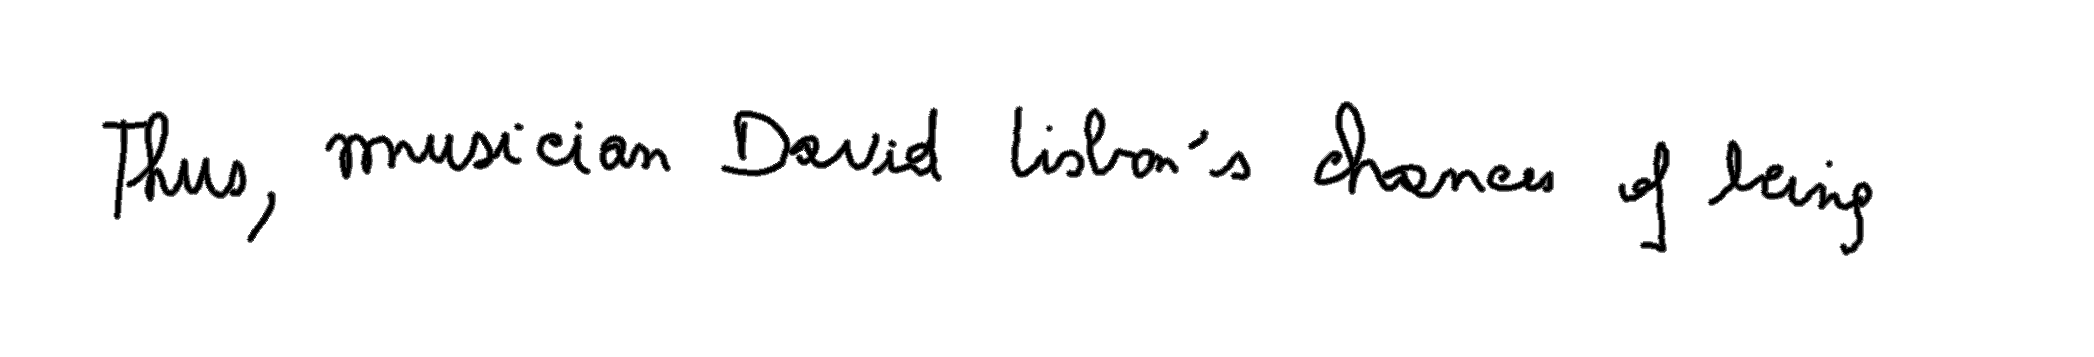 Thus, musician David Lisbon's chances of being